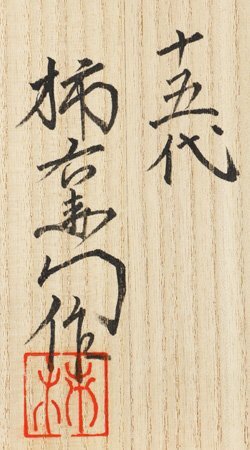 十五代
柿右衛門作
柿